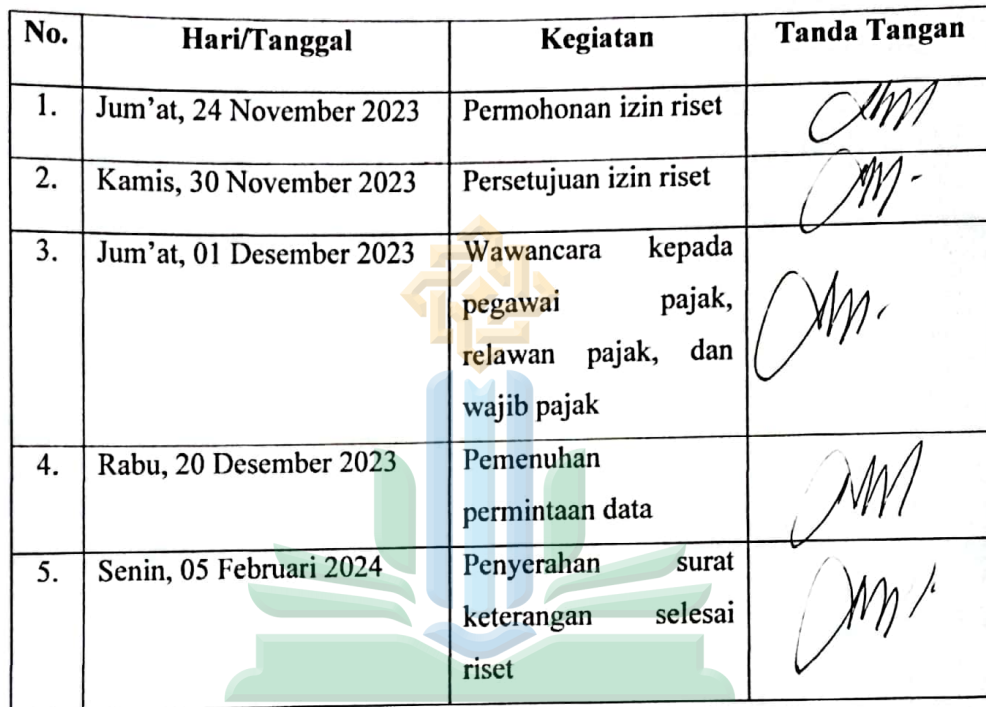 No. Hari/Tanggal Kegiatan Tanda Tangan
1. Jum'at, 24 November 2023 Permohonan izin riset
2. Kamis, 30 November 2023 Persetujuan izin riset
3. Jum'at, 01 Desember 2023 Wawancara kepada
pegawai pajak,
relawan pajak, dan
wajib pajak
4. Rabu, 20 Desember 2023 Pemenuhan
permintaan data
5. Senin, 05 Februari 2024 Penyerahan surat
keterangan selesai
riset